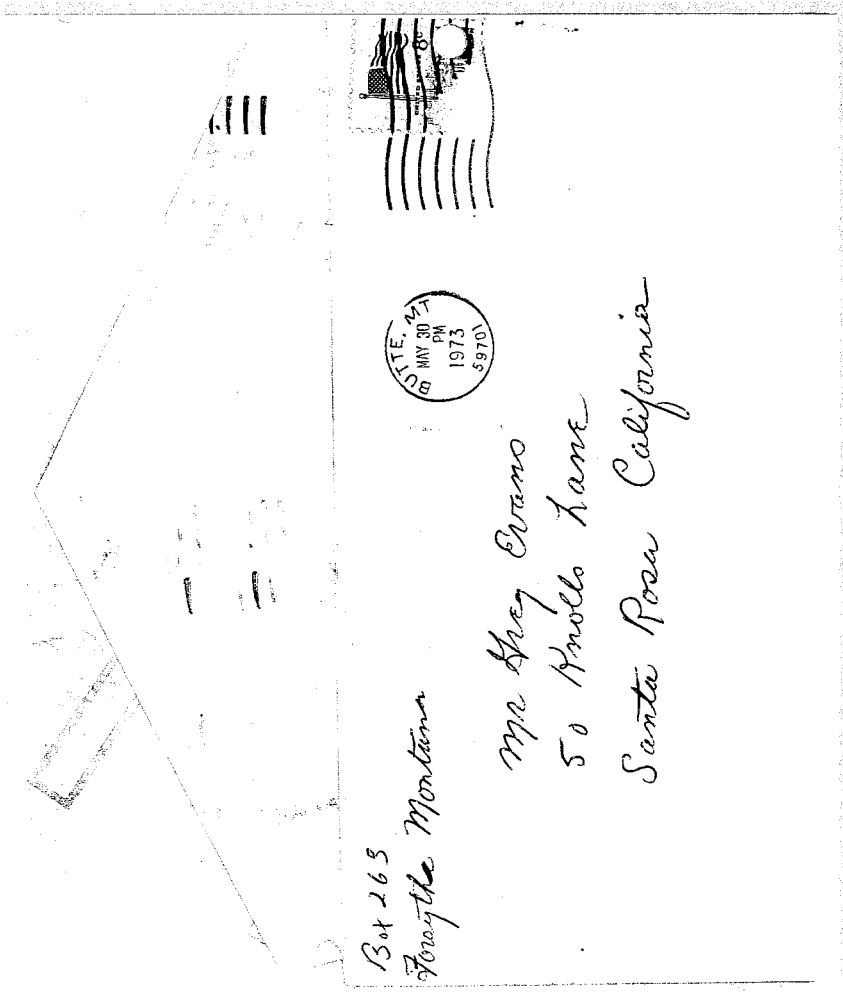 Box 263
Forsythe Montana
BUTTE, MT
MAY 30
PM
1973
59701
8c
Mr Greg Evans
50 Knolls Lane
Santa Rosa California